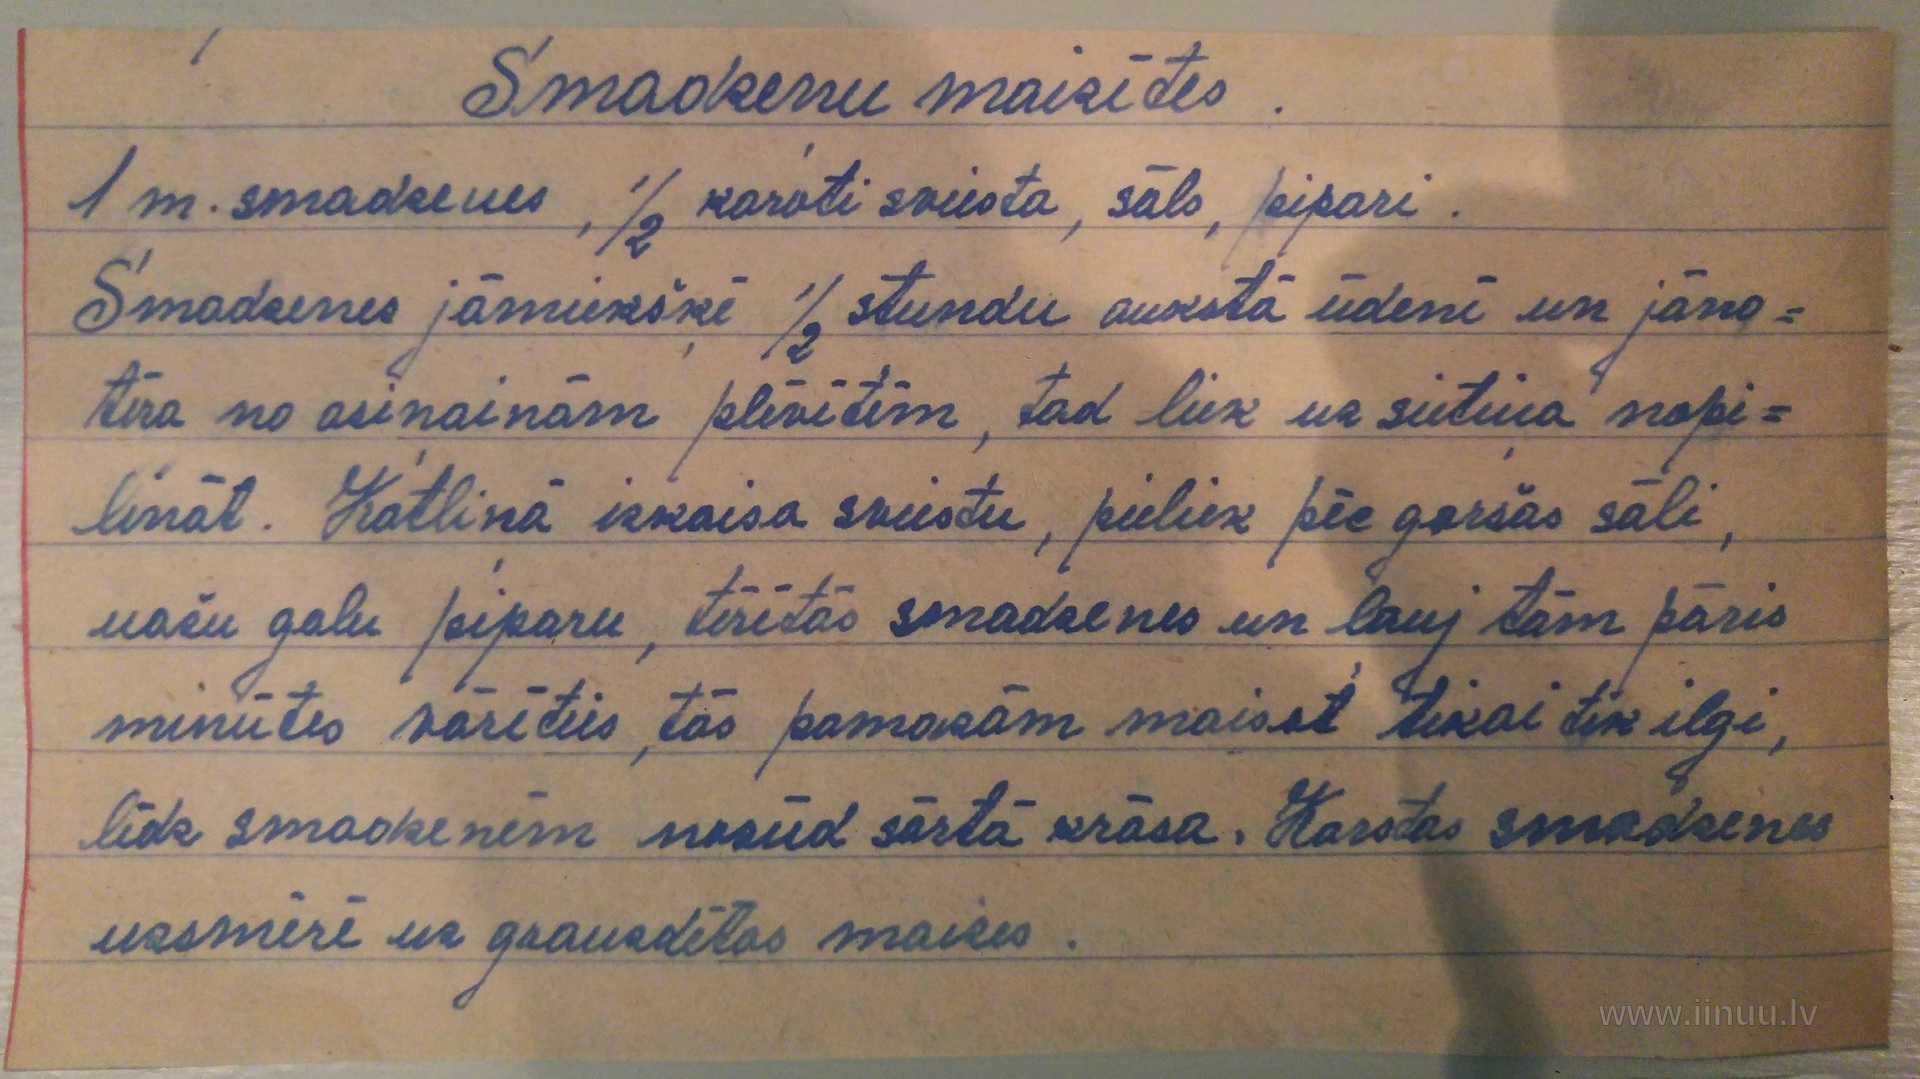 Smadzeņu maizītes.
1 m. smadzenes, 1/2 karoti sviesta, sāls, pipari.
Smadzenes jāmiekšķē 1/2 stundu aukstā ūdenī un jāno=
tīra no asiņainām plēvītēm, tad liek uz sietiņa nopi=
lināt. Katliņā izkaisa sviestu, pieliek pēc garšas sāli,
nažu galu piparu, tīrītās smadzenes un ļauj tām pāris
minūtes vārīties, tās pamazām maisot tikai tik ilgi,
līdz smadzenēm nozūd sārtā krāsa. Karstas smadzenes
uzsmērē uz grauzdētas maizes.
www.iinuu.lv